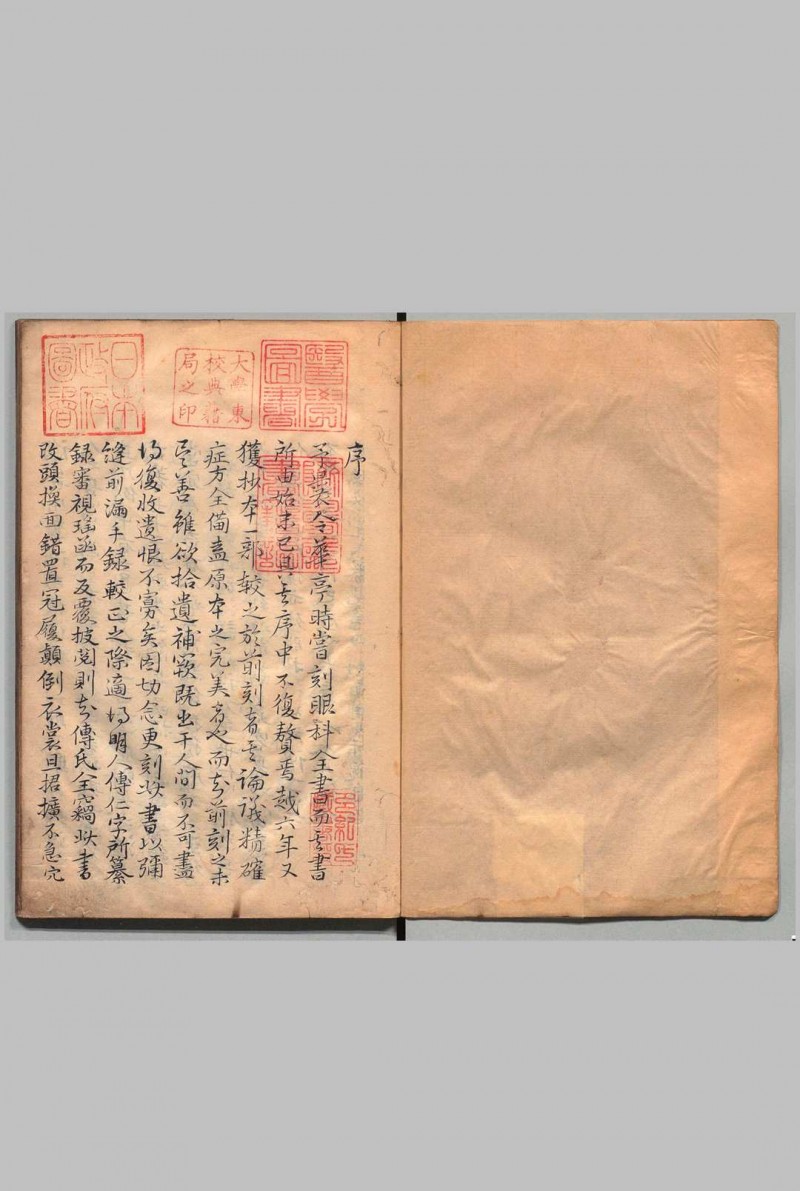 序
予曩大令華亭時嘗刻眼科全書而其書
所由始末已具其序中不復贅焉越六年又
獲抄本一部較之於前刻者其論議精確
症方全備蓋原本之完美者也而知前刻之未
盡善雖欲拾遺補竅既出于人間而不可盡
得復收遺恨不寡矣因切念更刻此書以彌
縫前漏手錄較正之際適得明人傳仁宇所纂
錄審視瑤函而反覆披閱則知傳氏全竊此書
改頭換面錯置冠履顛倒衣裳且捃摭不急冗
醫學圖書
大學東校典籍局之印
日本政府圖書